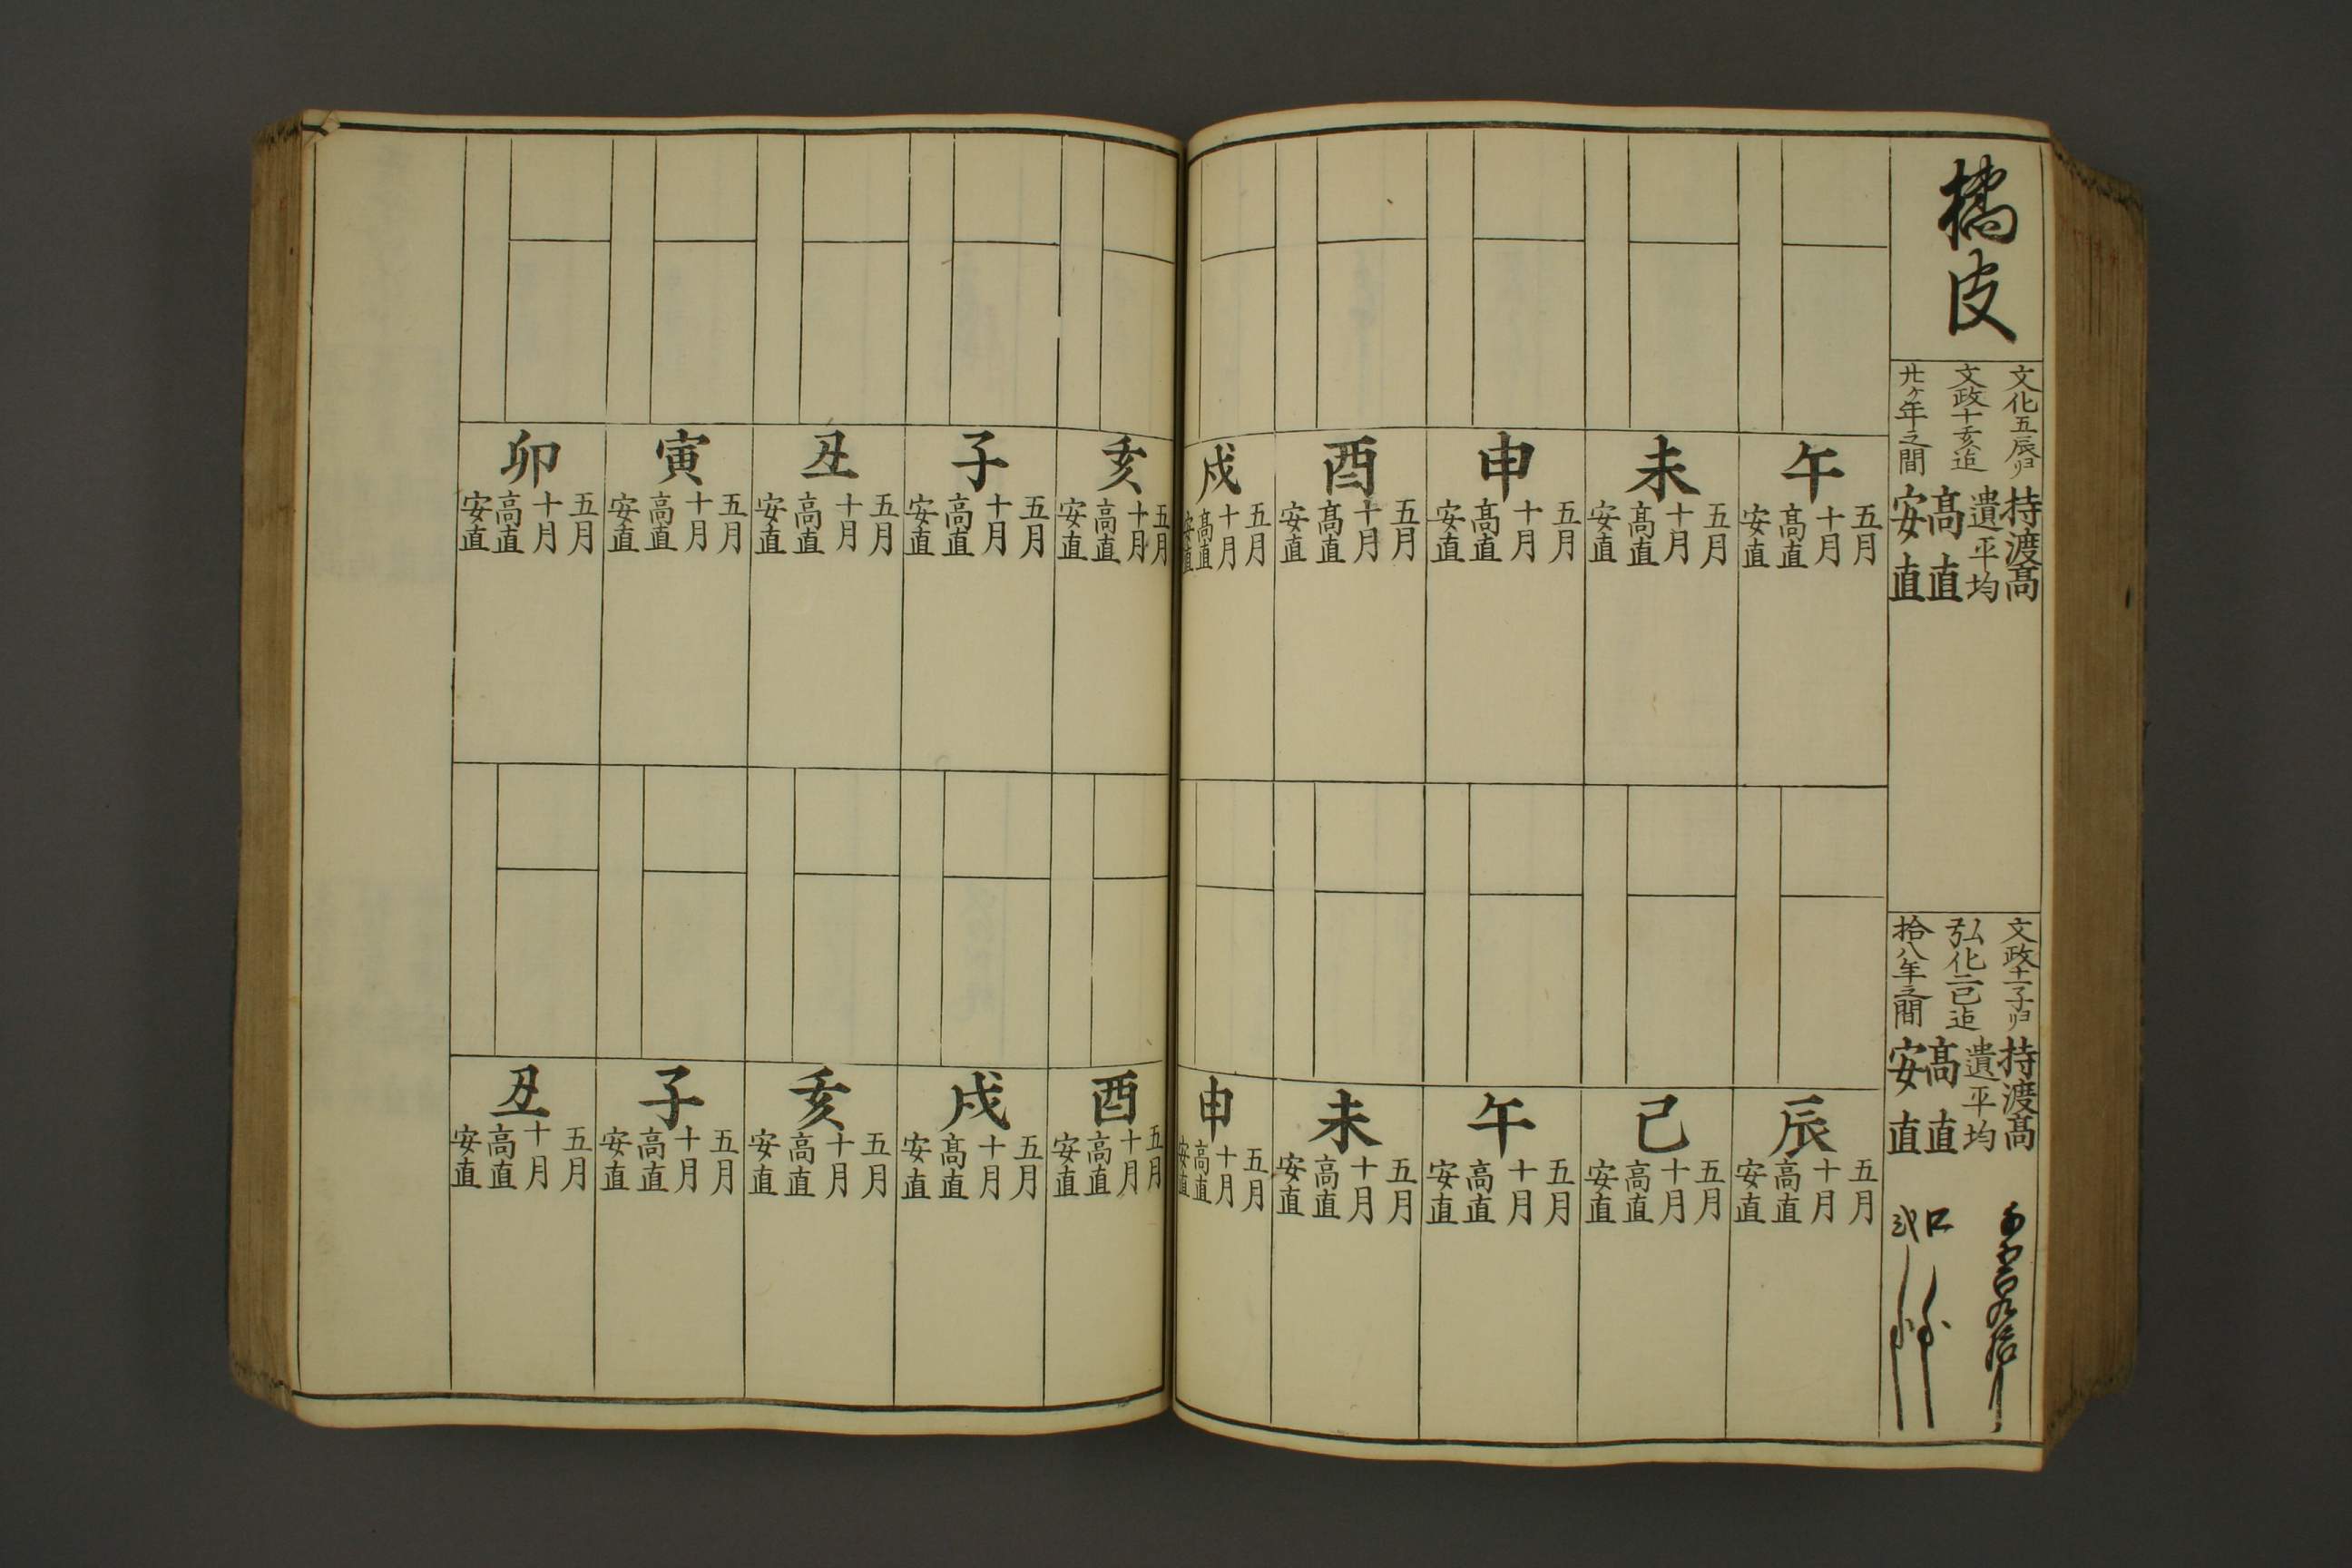 橘皮
文化五辰ゟ
文政十亥迄
廿ケ年之間
持渡髙
遣平均
髙直
安直
文政十一子ゟ
弘化二巳迄
拾八年之間
持渡髙
遣平均
髙直
安直
午
五月
十月
髙直
安直
未
五月
十月
髙直
安直
申
五月
十月
髙直
安直
酉
五月
十月
髙直
安直
戌
五月
十月
髙直
安直
亥
五月
十月
高直
安直
子
五月
十月
高直
安直
丑
五月
十月
高直
安直
寅
五月
十月
高直
安直
卯
五月
十月
高直
安直
辰
五月
十月
高直
安直
巳
五月
十月
高直
安直
午
五月
十月
高直
安直
未
五月
十月
高直
安直
申
五月
十月
高直
安直
酉
五月
十月
高直
安直
戌
五月
十月
髙直
安直
亥
五月
十月
高直
安直
子
五月
十月
高直
安直
丑
五月
十月
高直
安直